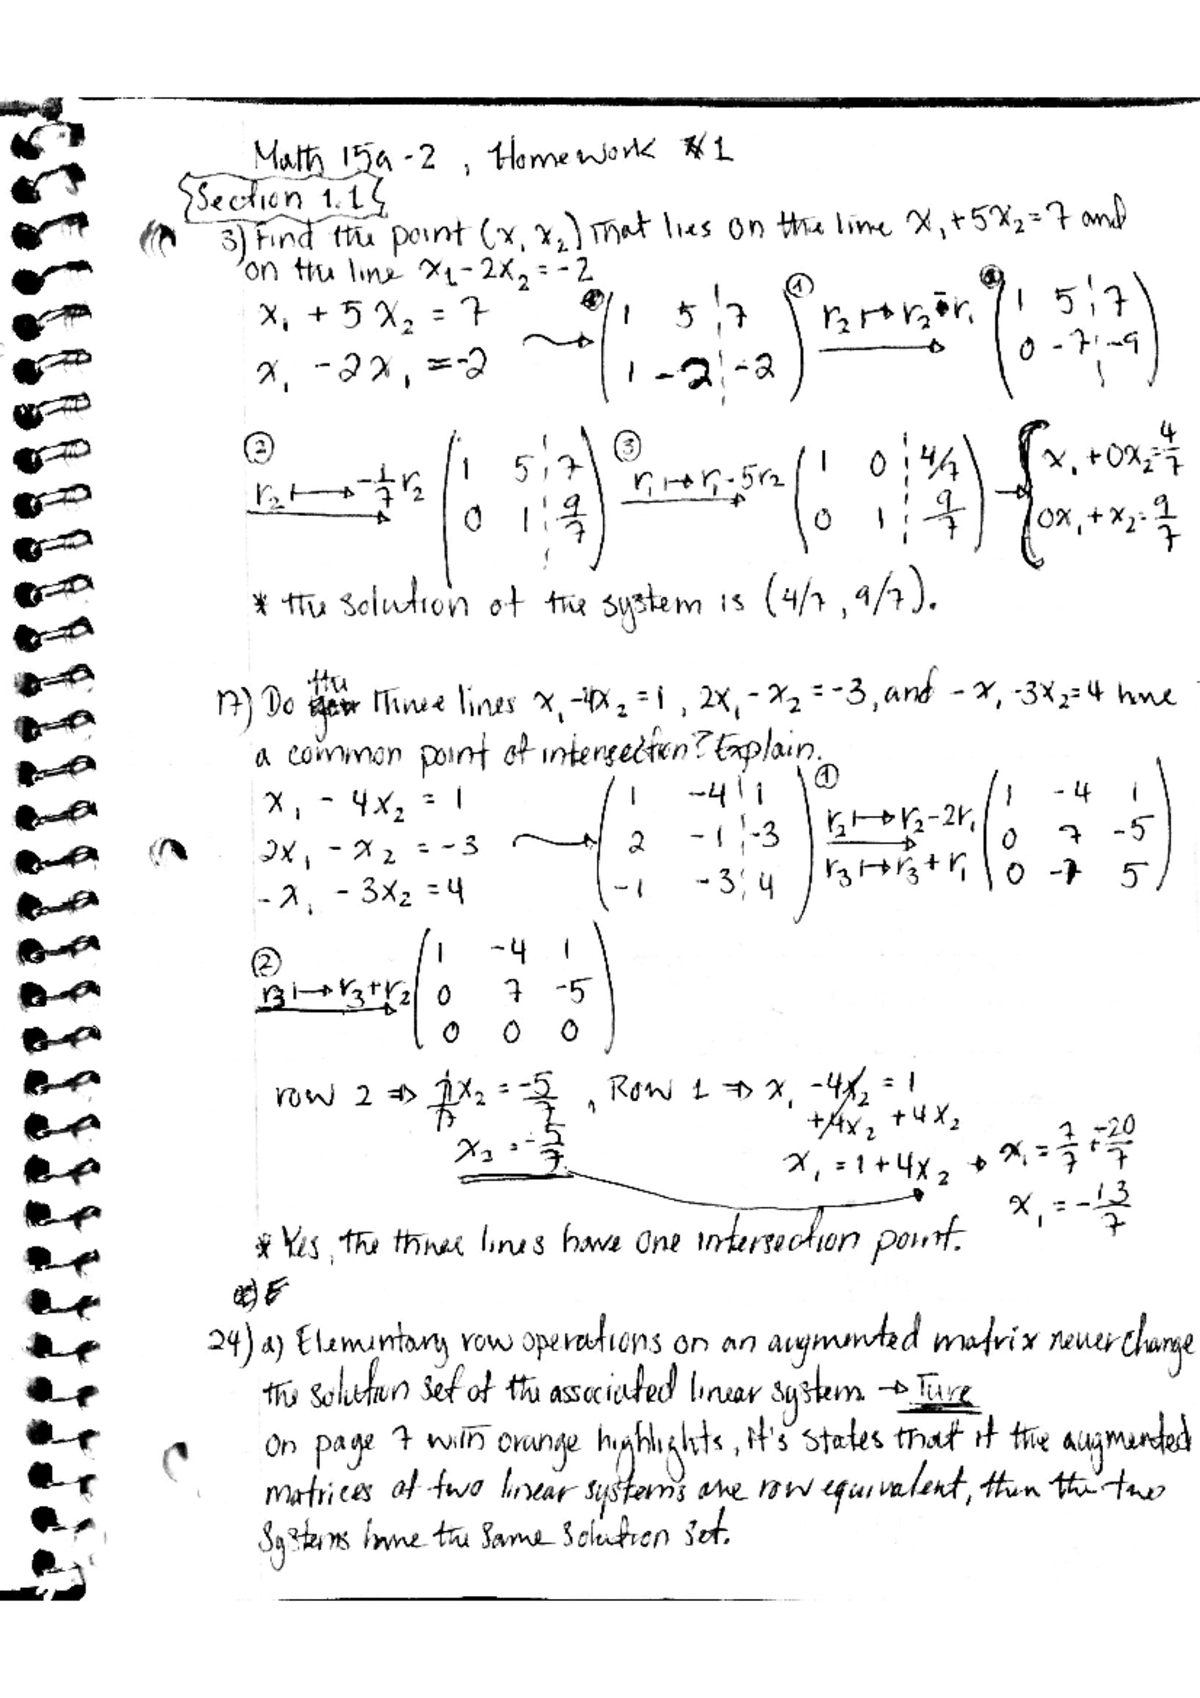 Math 15a-2, Homework #1
Section 1.1
3) Find the point (x₁ x₂) that lies on the line x₁+5x₂=7 and
on the line x₁-2x₂=-2
x₁ + 5x₂ = 7 → (1 5 | 7; 1 -2 | -2) ① r₂ ↦ r₂-r₁ (1 5 | 7; 0 -7 | -9)
x₁ - 2x₁ = -2
② r₂ ↦ -1/7 r₂ (1 5 | 7; 0 1 | 9/7) ③ r₁ ↦ r₁-5r₂ (1 0 | 4/7; 0 1 | 9/7) → { x₁+0x₂=4/7
0x₁+x₂=9/7
* the solution of the system is (4/7, 9/7).
17) Do the three lines x₁-4x₂=1, 2x₁-x₂=-3, and -x₁-3x₂=4 have
a common point of intersection? Explain.
x₁ - 4x₂ = 1 → (1 -4 | 1; 2 -1 | -3; -1 -3 | 4) ① r₂ ↦ r₂-2r₁ r₃ ↦ r₃+r₁ (1 -4 1; 0 7 -5; 0 -7 5)
2x₁ - x₂ = -3
-x₁ - 3x₂ = 4
② r₃ ↦ r₃+r₂ (1 -4 1; 0 7 -5; 0 0 0)
row 2 ⇒ 7/7 x₂ = -5/7, Row 1 ⇒ x₁ - 4x₂ = 1
+4x₂ +4x₂
x₂ = -5/7 x₁ = 1+4x₂ → x₁ = 7/7 + -20/7
x₁ = -13/7
* Yes, the three lines have one intersection point.
24) a) Elementary row operations on an augmented matrix never change
the solution set of the associated linear system → Ture
On page 7 with orange highlights, it's states that if the augmented
matrices of two linear systems are row equivalent, then the two
systems have the same solution set.